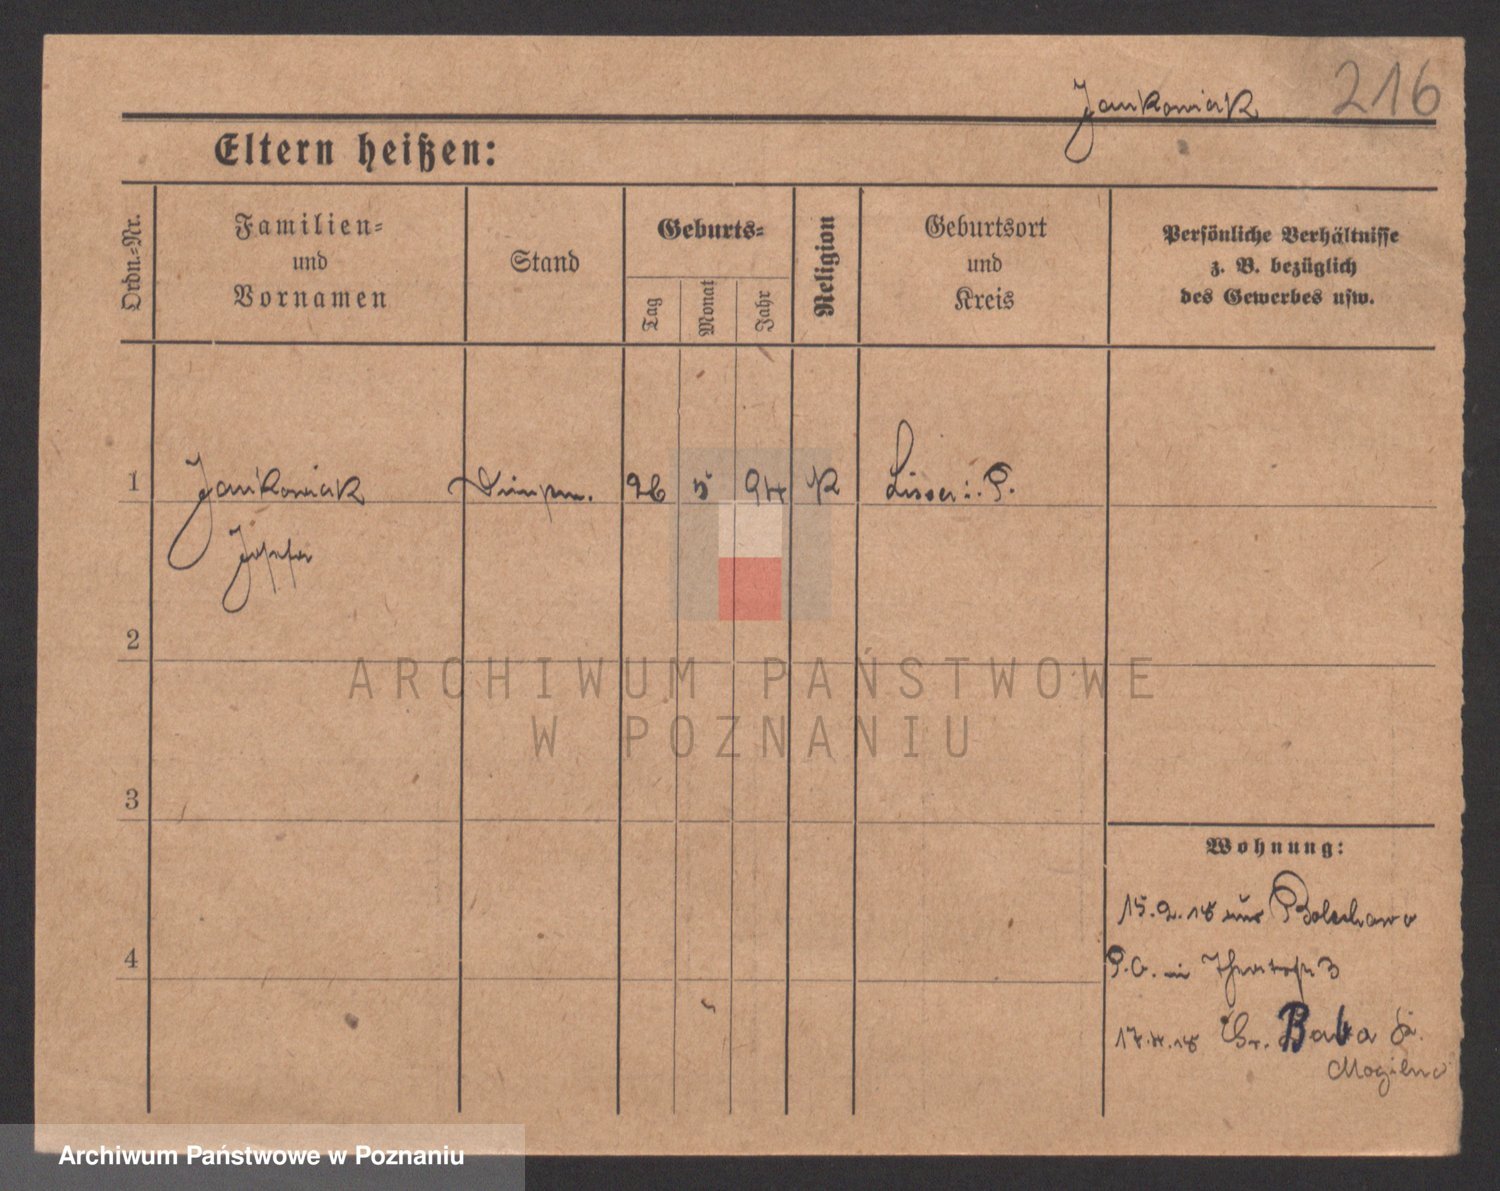 216
Jankowiak
Eltern heißen:
Ordn.-Nr.
Familien-
und
Vornamen
Stand
Geburts-
Tag
Monat
Jahr
Religion
Geburtsort
und
Kreis
Persönliche Verhältnisse
z. B. bezüglich
des Gewerbes usw.
1
Jankowiak
26 5 94 K
Lissa i. P.
Josefa
2
3
4
ARCHIWUM PAŃSTWOWE
W POZNANIU
Wohnung:
15.2.18 aus Bolechowo
P.O. in
17.4.18 Gr. Baba Kr.
Mogilno
Archiwum Państwowe w Poznaniu